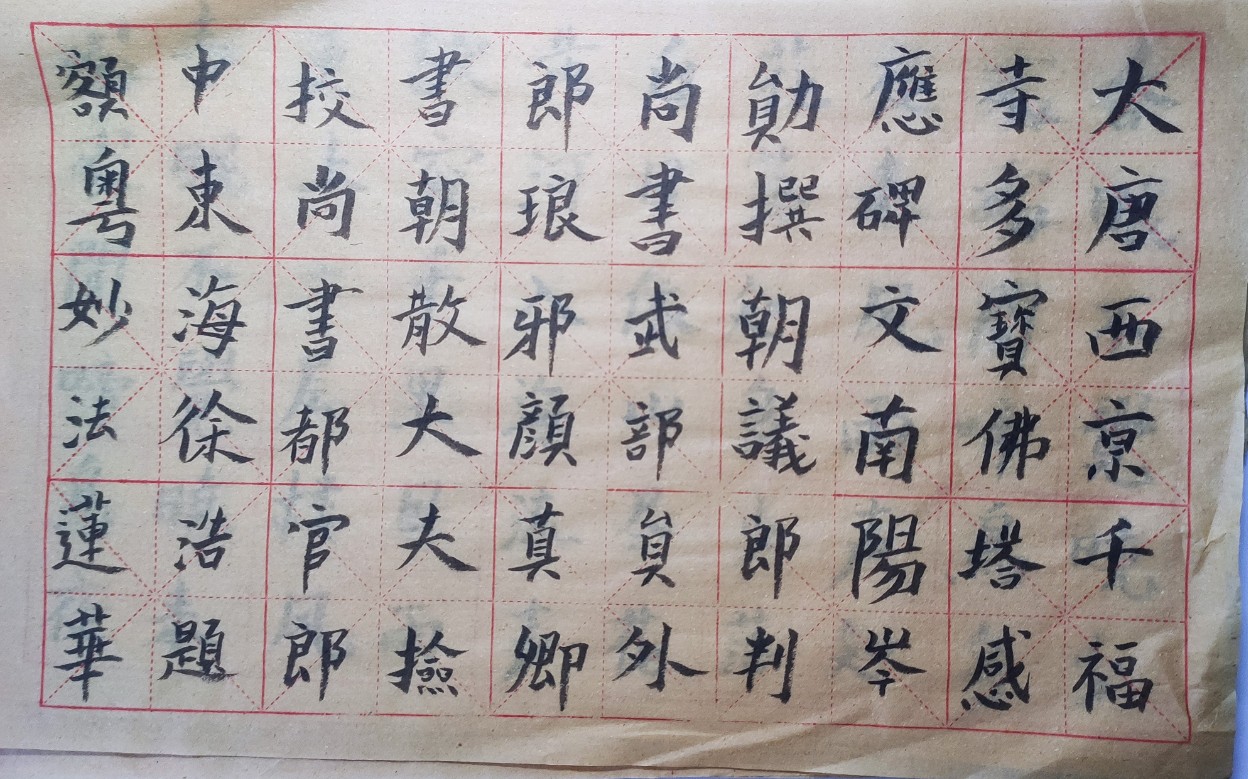 大唐西京千福
寺多寶佛塔感
應碑文南陽岑
勛撰朝議郎判
尚書武部員外
郎琅邪顏真卿
書朝散大夫撿
挍尚書都官郎
中東海徐浩題
額粵妙法蓮華